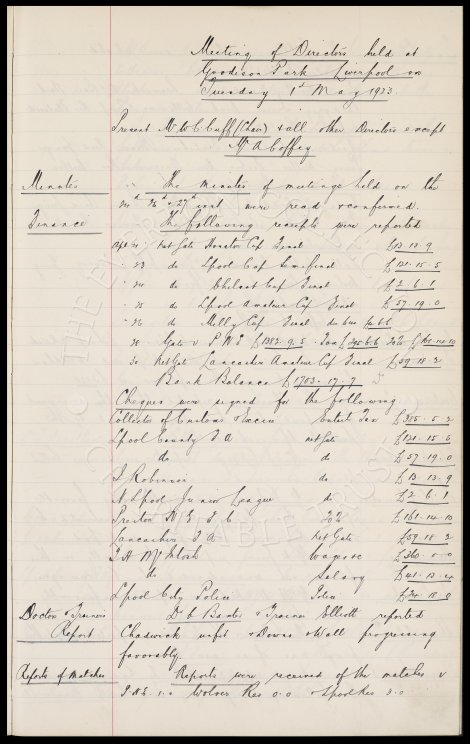 Meeting of Directors held at
Goodison Park Liverpool on
Tuesday 1st May 1923.
Present Mr W C Cuff (Chair) & all other Directors except
Mr A Coffey
Minutes
The Minutes of meetings held on the
24th 26th & 27th inst were read & confirmed.
Finance
The following receipts were reported
Net Gate Senator Cup Final £13. 13. 9
" 23 do Lpool Cup Semifinal £121. 15. 5
" 24 do Final £2. 6. 1
" 25 do Lpool Amateur Cup Final £57. 19. 0
" 26 do Molly Cup Final
28 Gate v P.N.E £1382. 9. 5 Tax 20% £161. 14. 10
30 Net Gate Lancashire Amateur Cup Final £59. 18. 2
Bank Balance £1703. 17. 9
Cheques were signed for the following
Collector of Customs & Excise Entert Tax £345. 5. 2
Lpool County F A net Gate £121. 15. 5
do do £57. 19. 0
J Robinson do £13. 13. 9
N. Lpool Junior League do £2. 6. 1
Preston N. E. F. C 20% £161. 14. 10
Lancashire F A Net Gate £59. 18. 2
Wages £360. 0. 0
do Salary £41. 13. 4
Lpool City Police £24. 18. 8
Doctor & Trainers
Report
Dr C Baxter & Trainer Elliott reported
Chadwick unfit & Downs & Wall progressing
favorably.
Reports of Matches
Reports were received of the matches v
P.N.E. 1. 0 Wolver Res 0. 0 & Lpool Res 3. 0
THE EVERTON
CHARITABLE TRUST